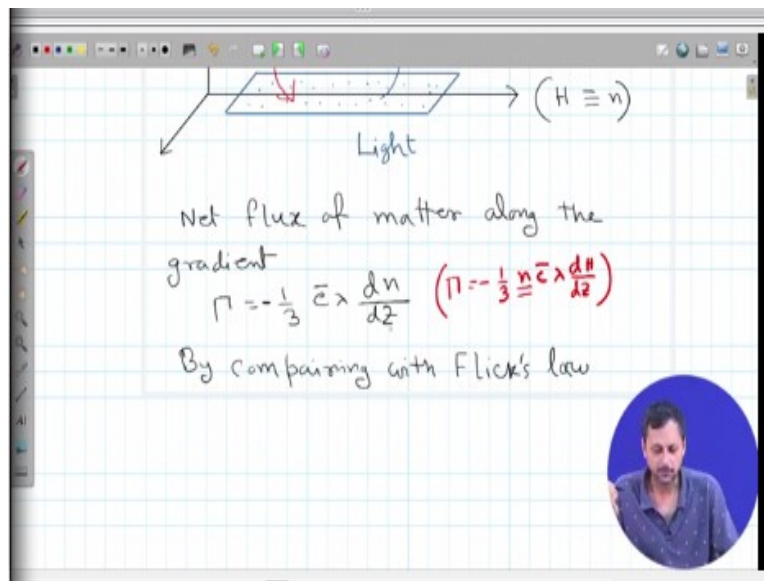 (H ≡ n)
Light
Net flux of matter along the
gradient
Γ = - 1/3 c̄ λ dn/dz (Γ = - 1/3 n c̄ λ dH/dz)
By compairing with Flick's law
AI